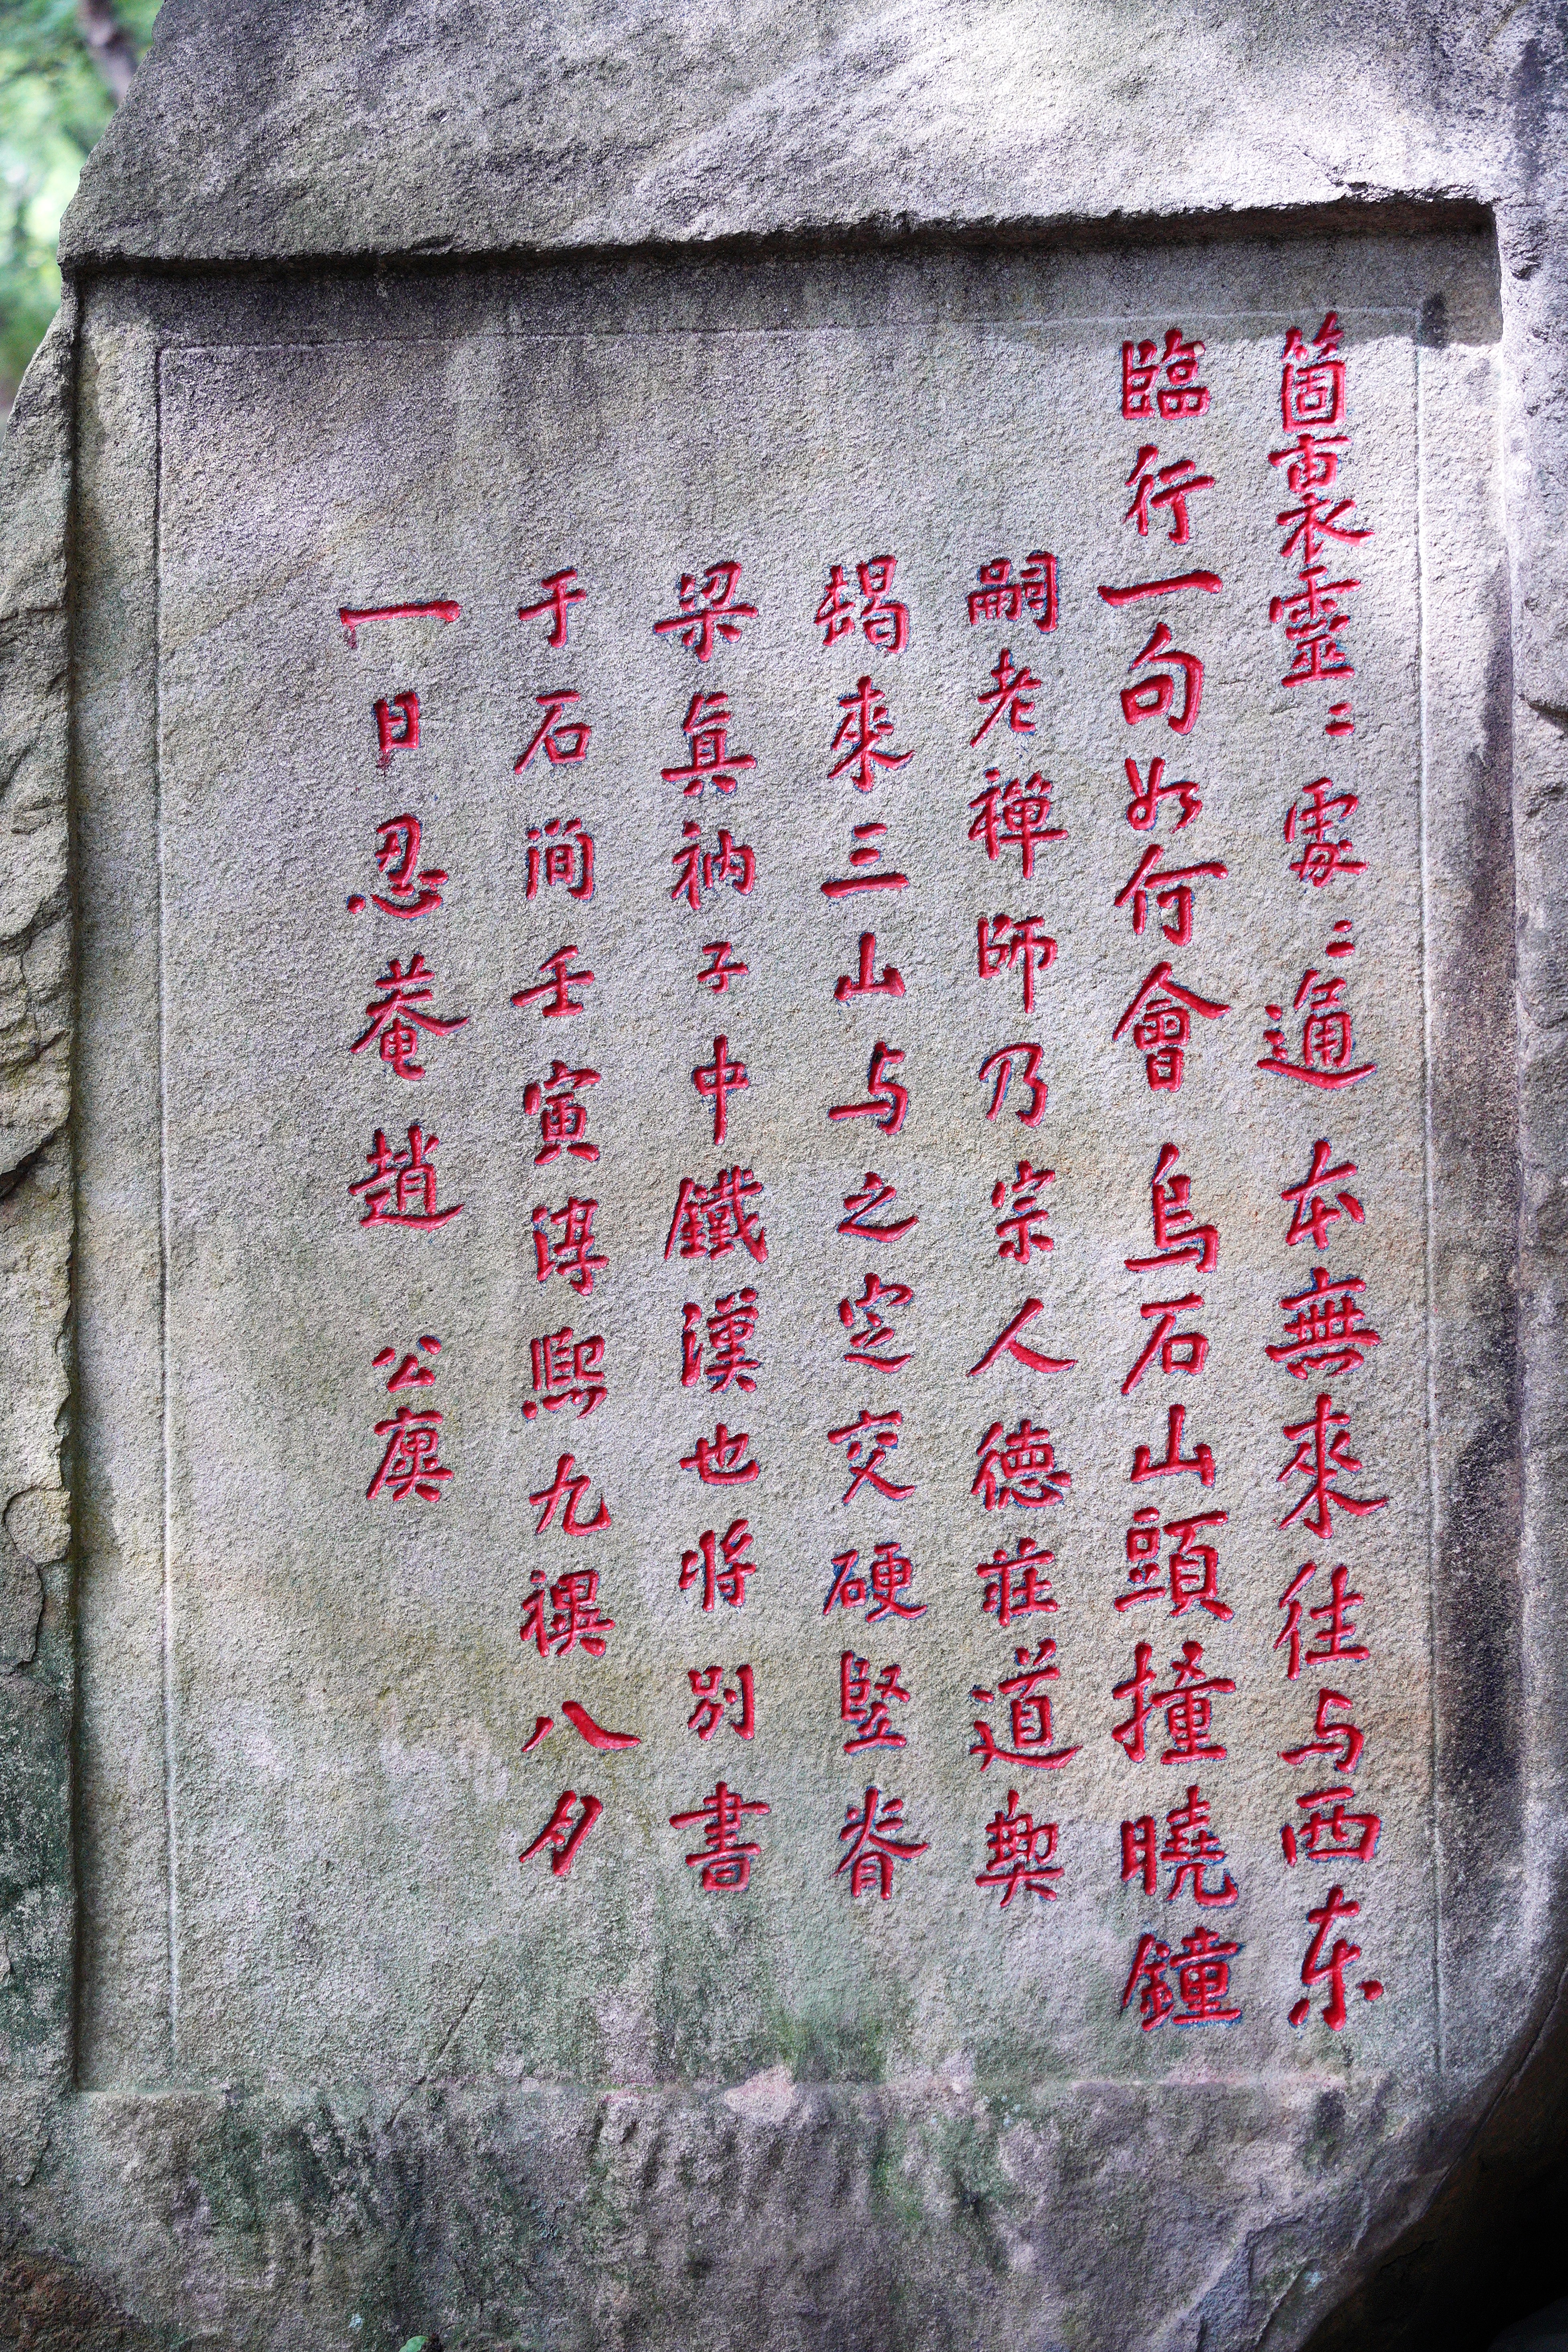 箇裏靈〻處〻通本無來往与西东
臨行一句如何會烏石山頭撞曉鐘
嗣老禅師乃宗人德莊道契
朅來三山与之定交硬竪脊
梁眞衲子中鐵漢也将别書
于石澗壬寅淳熙九禩八月
一日忍菴趙公廙